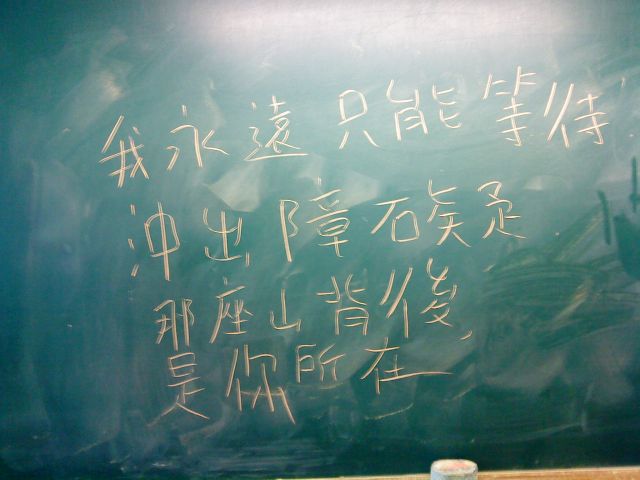 我永遠只能等待
沖出障礙
那座山背後
是你所在